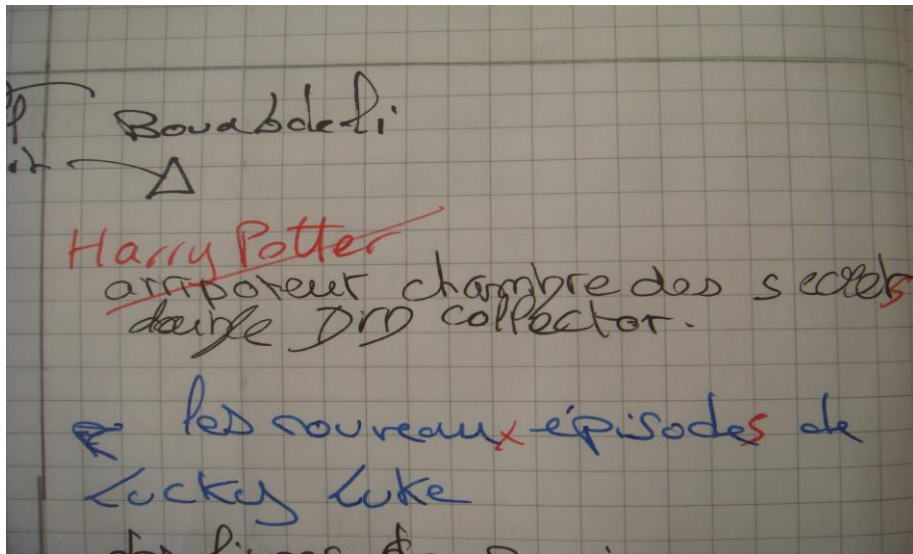 Bouabdelli
Harry Potter
arripoteur chambre des secrets
double DVD collector.
les nouveaux épisodes de
Lucky Luke